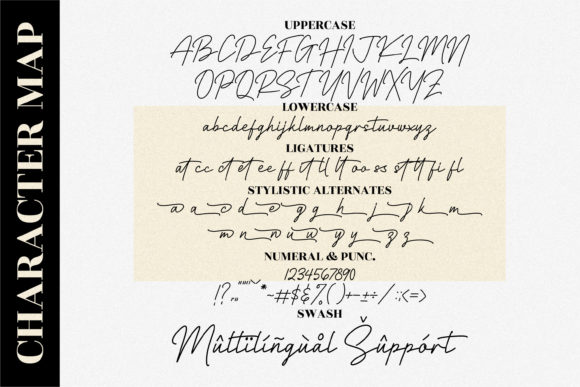 CHARACTER MAP
UPPERCASE
ABCDEFGHIJKLMN
OPQRSTUVWXYZ
LOWERCASE
abcdefghijklmnopqrstuvwxyz
LIGATURES
at cc ct et ee ff it ll lt oo ss st tt fi fl
STYLISTIC ALTERNATES
a a c d e g g h j p k m
m n n u u y y z z
NUMERAL & PUNC.
1234567890
!? *~#$&%()+-±÷/:;<=>
SWASH
Mûltïlíñgùål Šûppórt